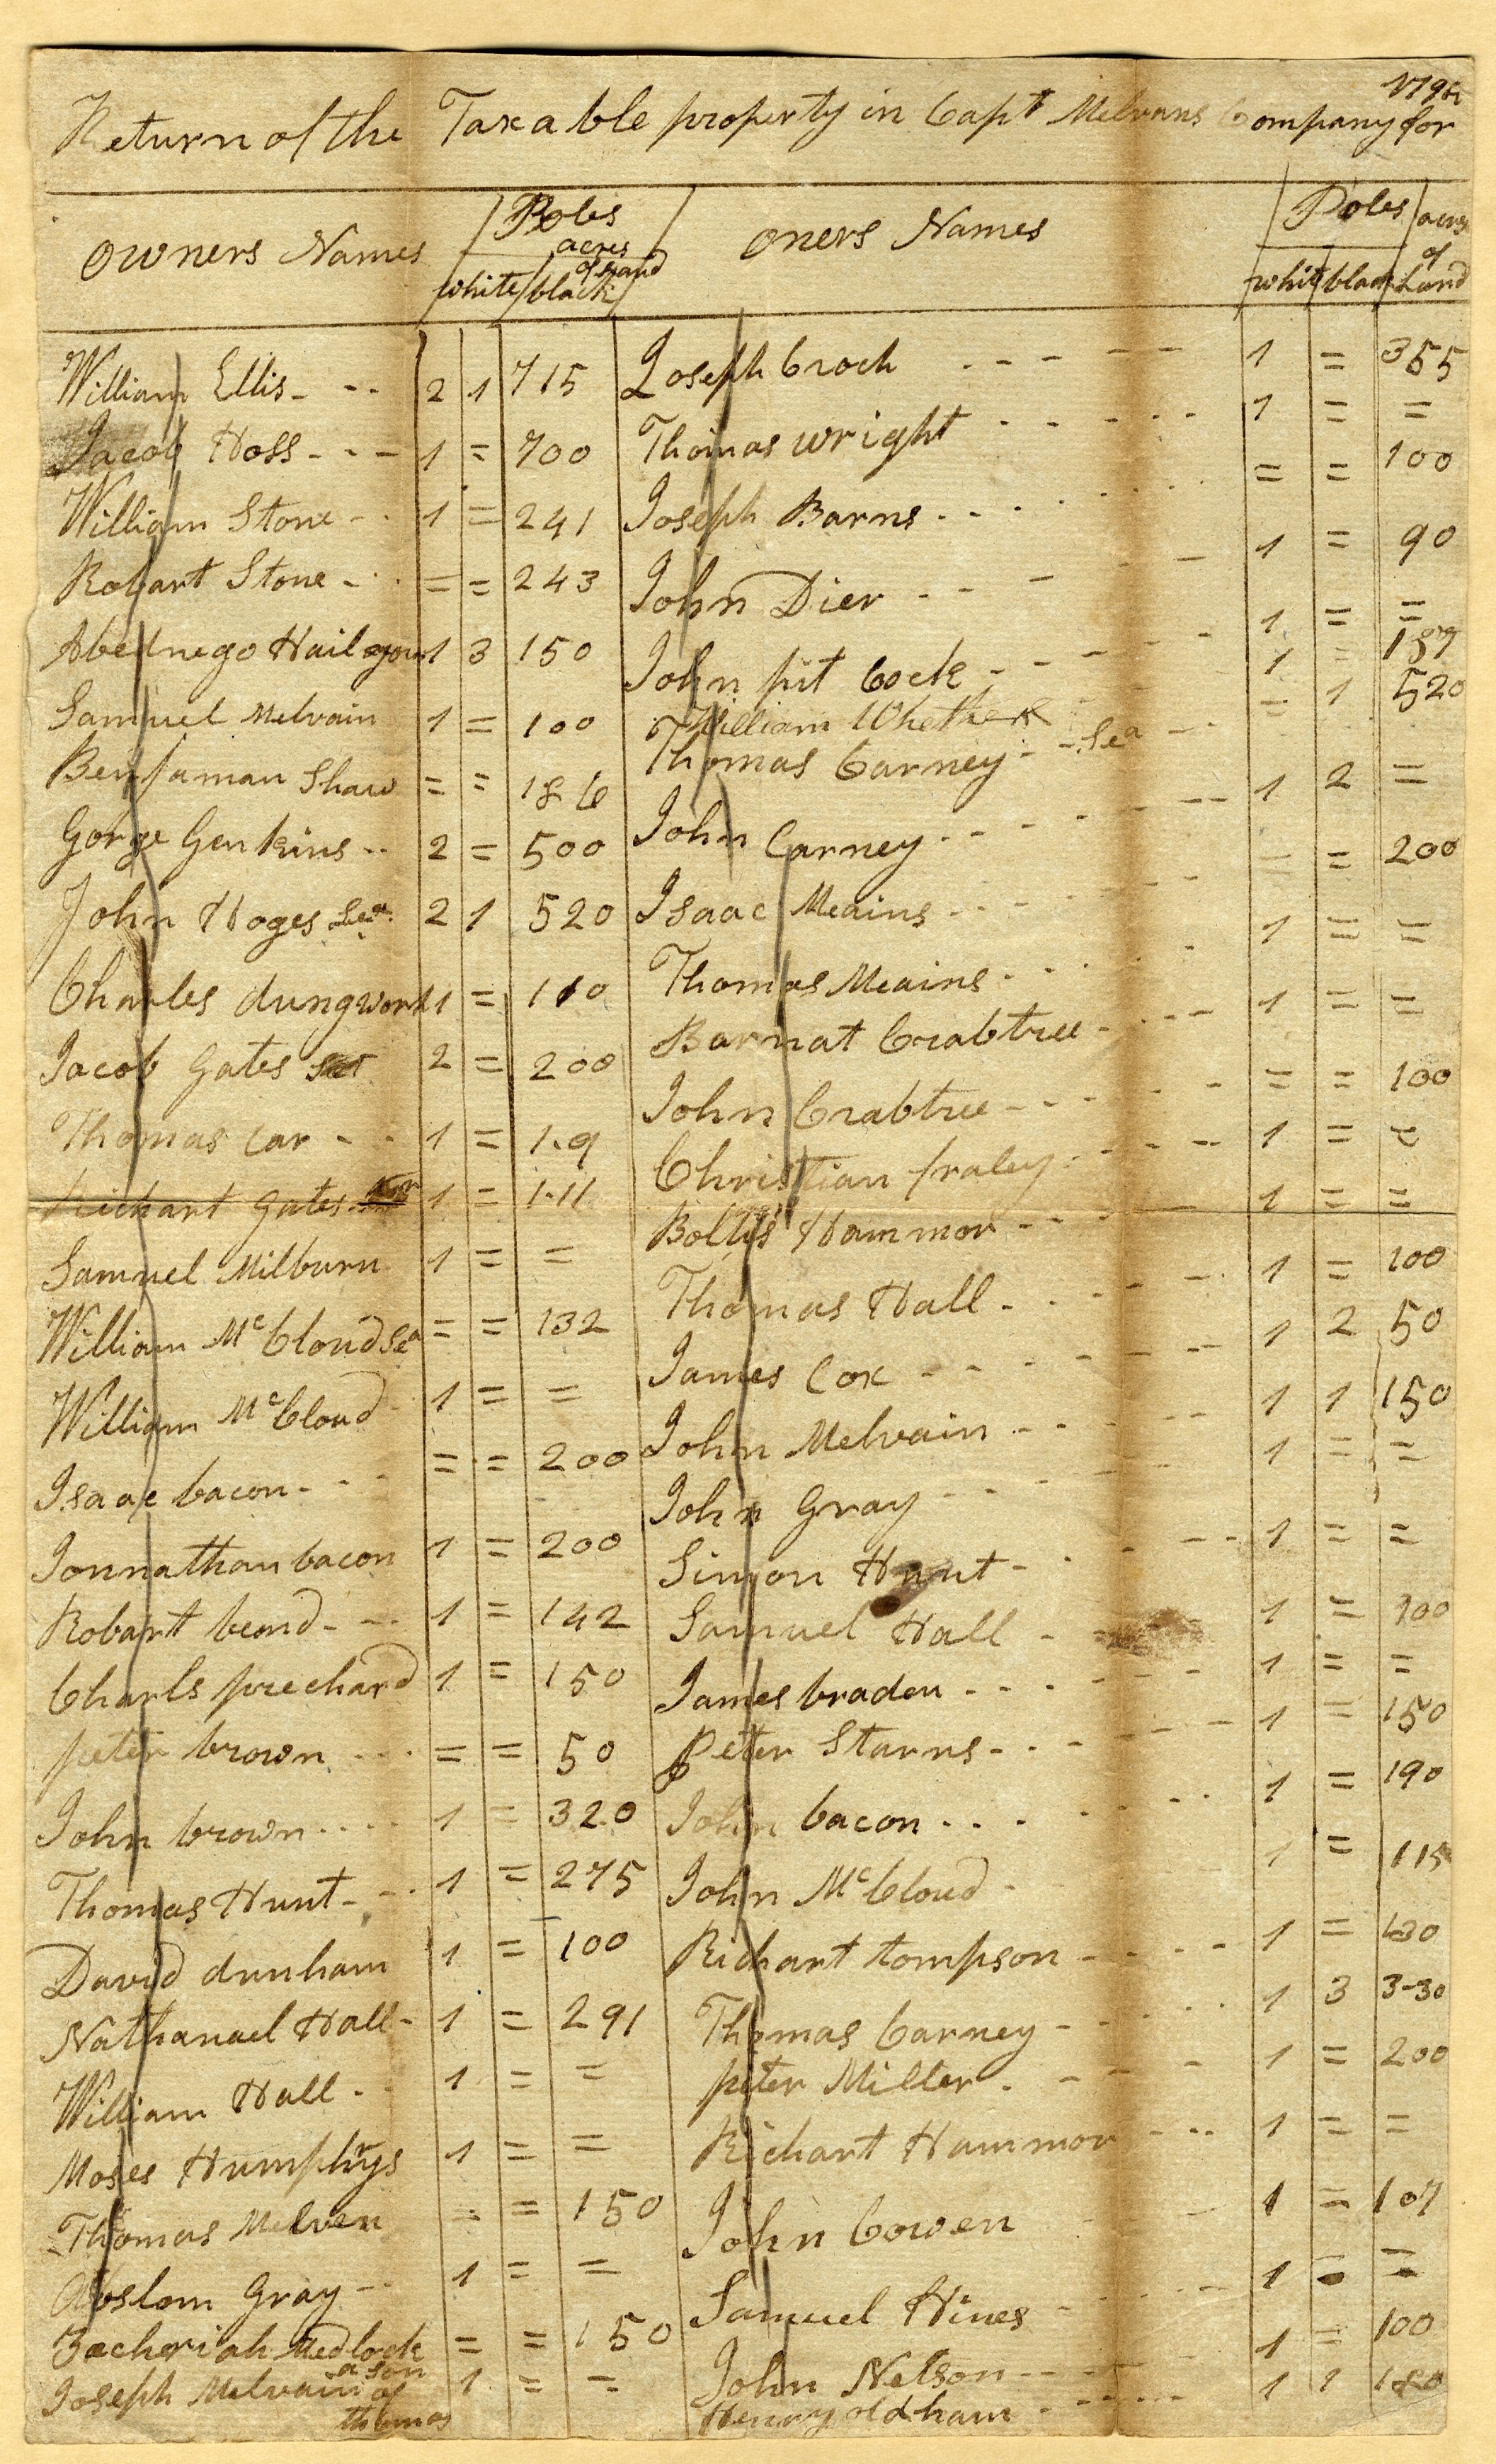 Return of the Taxable property in Capt Melvans Company for 179
owners Names
Poles
acres of Land
white black
oners Names
Poles
acres of Land
white black
William Ellis 2 1 715
Jacob Hoss 1 = 700
William Stone 1 = 241
Robart Stone = = 243
Abednego Hail 1 3 150
Samuel Melvain 1 = 100
Benjaman Shaw = = 186
Gorge Genkins 2 = 500
John Hoges 2 1 520
Charles dungworth 1 = 110
Jacob Gates 2 = 200
Thomas Car 1 = 1.9
Richart Gates 1 = 1.11
Samuel Milburn 1 = =
William Mc Cloud = = 132
William Mc Cloud 1 = =
Isaac bacon = = 200
Jonnathan bacon 1 = 200
Robart beard 1 = 142
Charls prechard 1 = 150
peter brown = = 50
John brown 1 = 320
Thomas Hunt 1 = 275
David dunham 1 = 100
Nathanael Hall 1 = 291
William Hall 1 = =
Moses Humphrys 1 = =
Thomas Melven = = 150
Abslom Gray 1 = =
Zacheriah Medlock = = 150
Joseph Melvain a son of thomas 1 = =
Joseph Croch 1 = 355
Thomas wright 1 = =
Joseph Barns = = 100
John Dier 1 = 90
John pit Cock 1 = =
William Whether 1 = 187
Thomas Carney = 1 520
John Carney 1 2 =
Isaac Meains = = 200
Thomas Meains 1 = =
Barnat Crabtree 1 = =
John Crabtree = = 100
Christian fraley 1 = =
Boltis Hammor 1 = =
Thomas Hall 1 = 100
James Cox 1 2 50
John Melvain 1 1 150
John Gray 1 = =
Simon Hunt 1 = =
Samuel Hall 1 = 100
James braden 1 = =
Peter Starns 1 = 150
John bacon 1 = 190
John Mc Cloud 1 = 115
Richart tompson 1 = 430
Thomas Carney 1 3 3-30
peter Miller 1 = 200
Richart Hammor 1 = =
John Cowen 1 = 107
Samuel Hines 1 = =
John Nelson 1 = 100
Henry oldham 1 1 180